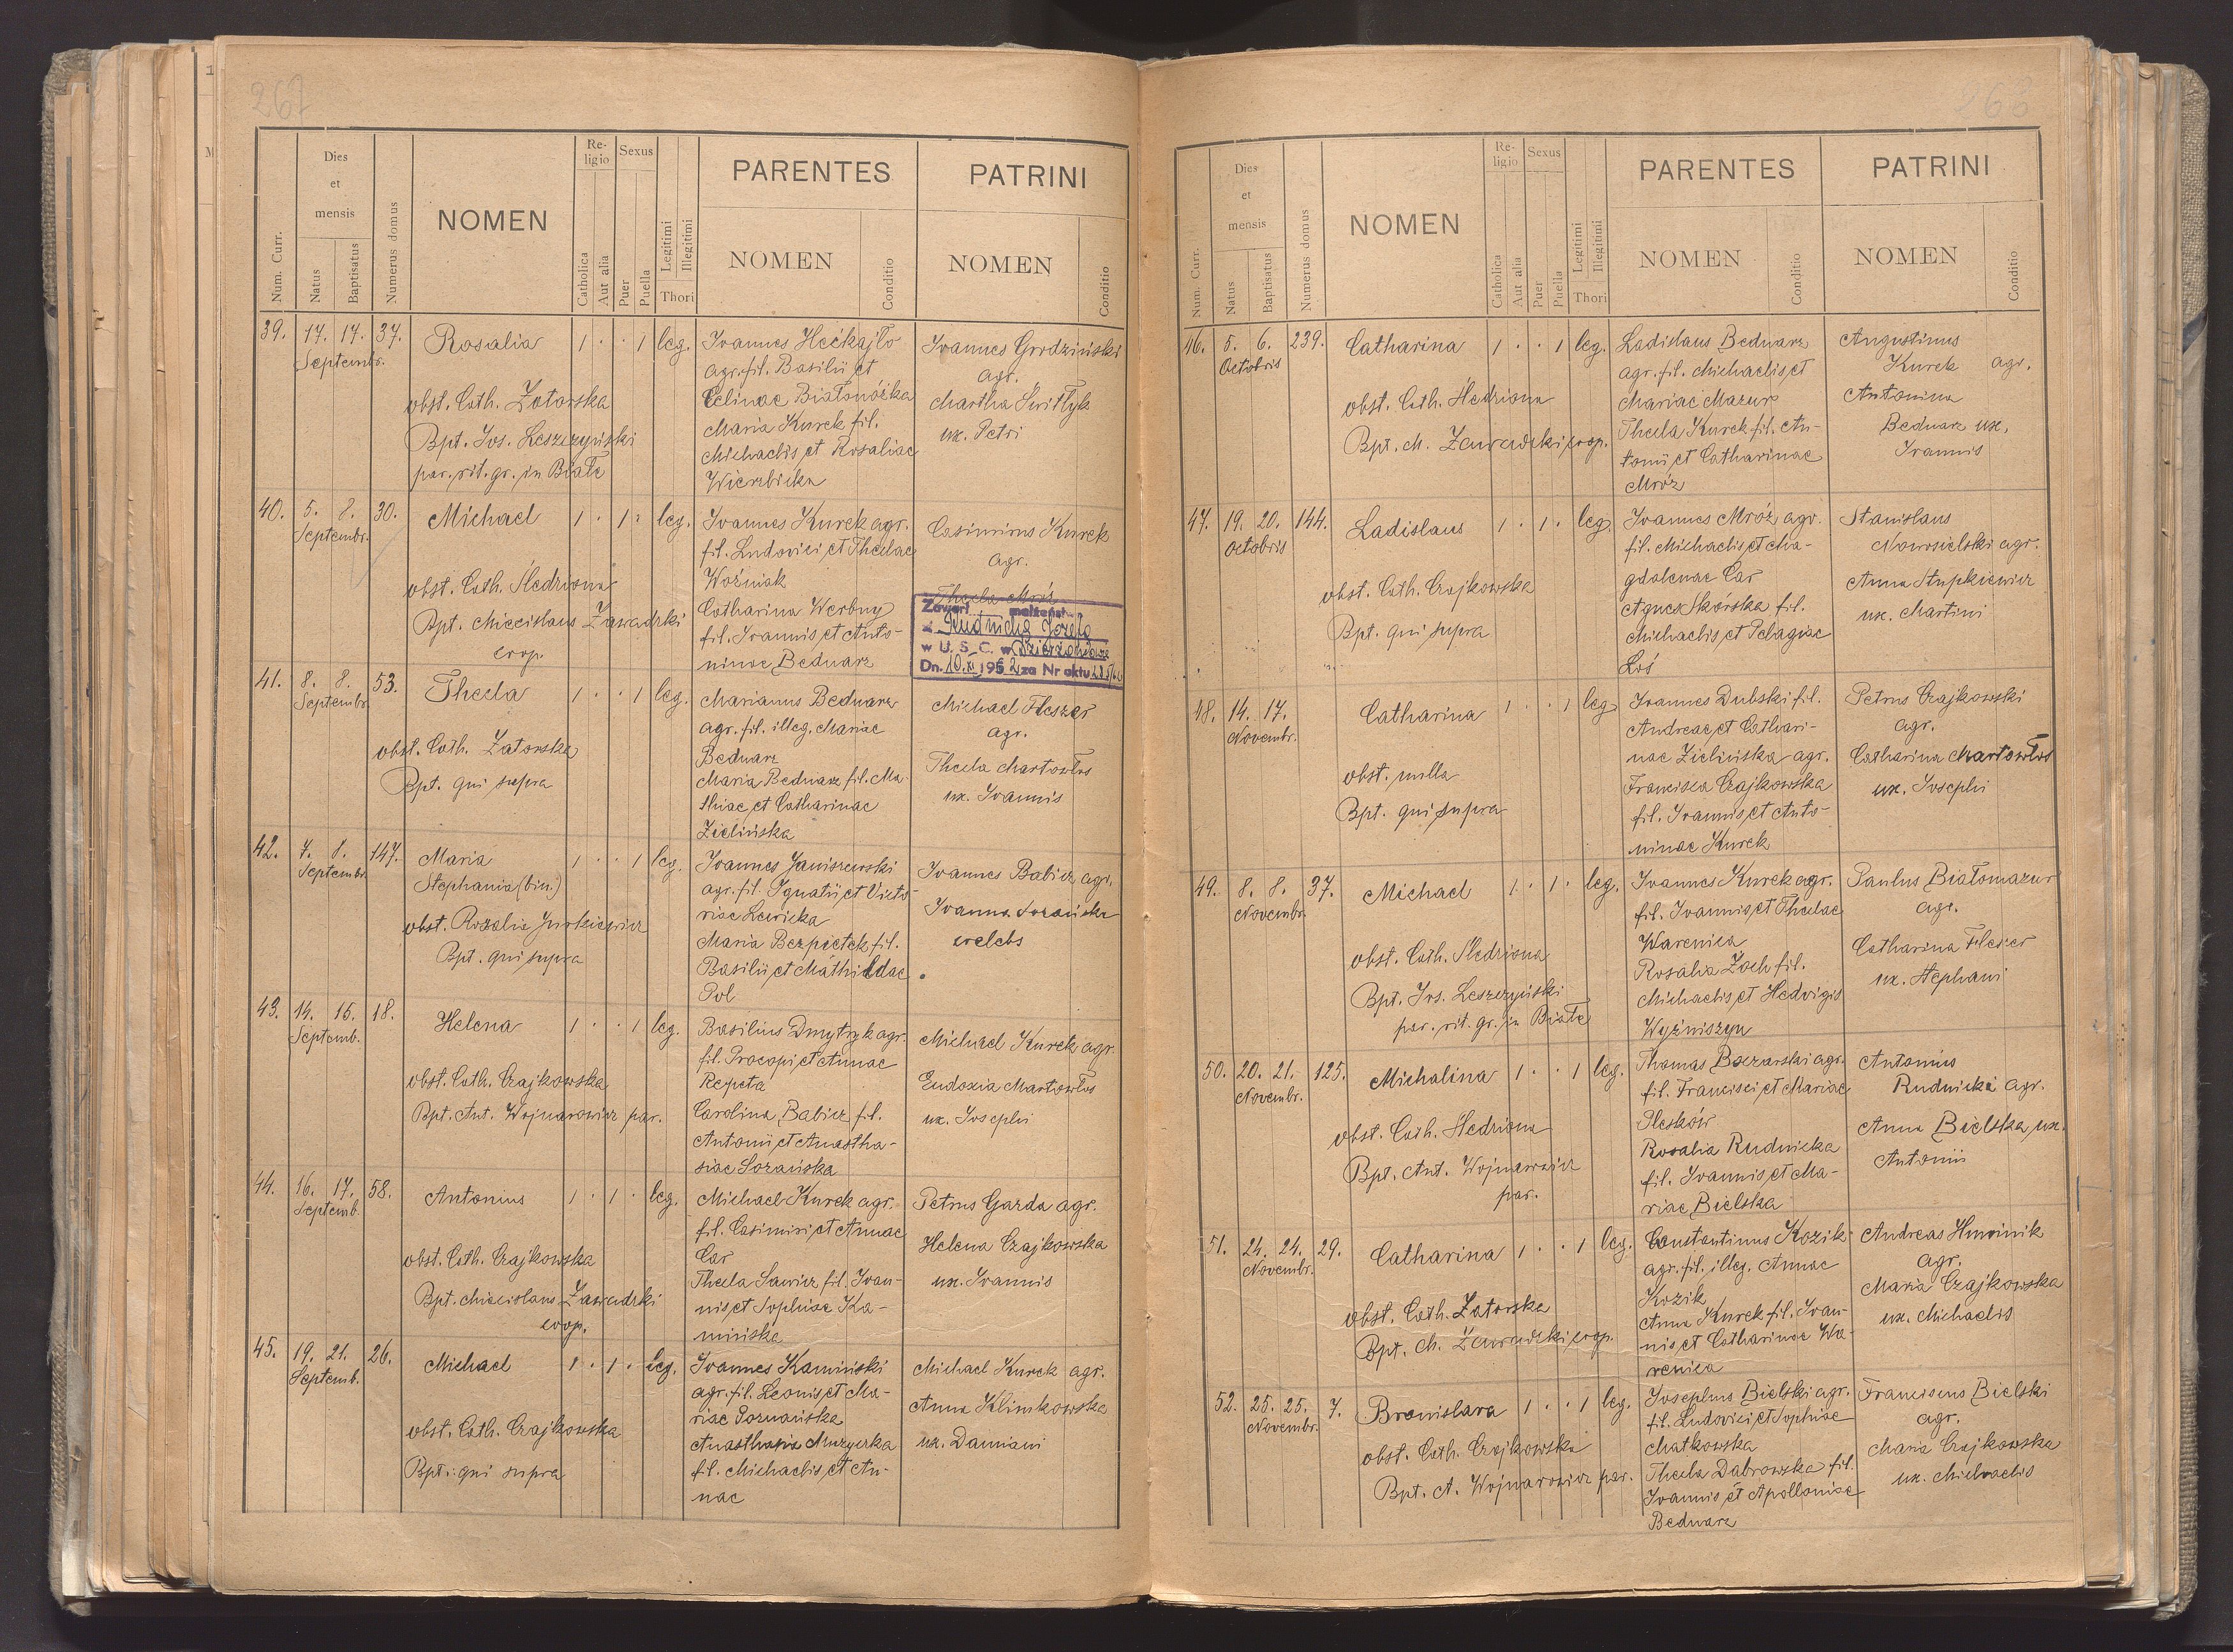 267
Num. Curr.
Dies et mensis
Natus
Baptisatus
Numerus domus
NOMEN
Religio
Catholica
Aut alia
Sexus
Puer
Puella
Legitimi
Illegitimi
Thori
PARENTES
NOMEN
Conditio
PATRINI
NOMEN
Conditio
39. 17. 17. 37. Rosalia 1 . . 1 leg.
Septembr.
obst. Cath. Zatorska
Bpt. Jos. Leszczyński
par. rit. gr. in Białe
Joannes Hećkajło
agr. fil. Basilii et
Celinae Białonóżka
Maria Kurek fil.
Michaelis et Rosaliae
Wierzbicka
Joannes Grodziński
agr.
Martha Świtłyk
ux. Petri
40. 5. 8. 30. Michael 1 . 1 . leg.
Septembr.
obst. Cath. Śledziona
Bpt. Miecislaus Zawadzki
coop.
Joannes Kurek agr.
fil. Ludovici et Theclae
Woźniak
Catharina Werbny
fil. Joannis et Anto-
ninae Bednarz
Casimirus Kurek
agr.
Thecla Mróz
Zawarł małżeństwo
z Rudnicką Józefą
w U. S. C. w Dzierżoniowie
Dn. 10.X 1952 za Nr aktu
41. 8. 8. 53. Thecla 1 . . 1 leg.
Septembr.
obst. Cath. Zatorska
Bpt. qui supra
Marianus Bednarz
agr. fil. illeg. Mariae
Bednarz
Maria Bednarz fil. Ma-
thiae et Catharinae
Zielińska
Michael Fleszer
agr.
Thecla Martowłos
ux. Joannis
42. 7. 8. 147. Maria 1 . . 1 leg.
Septembr.
Stephania (bin.)
obst. Rozalia Jurkiewicz
Bpt. qui supra
Joannes Janiszewski
agr. fil. Ignatii et Victo-
riae Lewicka
Maria Bezpietek fil.
Basilii et Mathildae
Pol
Joannes Babicz agr.
Joanna Sozańska
coelebs
43. 14. 15. 18. Helena 1 . . 1 leg.
Septemb.
obst. Cath. Czajkowska
Bpt. Ant. Wojnarowicz par.
Basilius Dmytryk agr.
fil. Procopi et Annae
Repeta
Carolina Babicz fil.
Antonii et Anastha-
siae Sozańska
Michael Kurek agr.
Eudoxia Martowłos
ux. Josephi
44. 16. 17. 58. Antonius 1 . 1 . leg.
Septemb.
obst. Cath. Czajkowska
Bpt. Miecislaus Zawadzki
coop.
Michael Kurek agr.
fil. Casimiri et Annae
Car
Thecla Sawicz fil. Joan-
nis et Sophiae Ka-
mińska
Petrus Garda agr.
Helena Czajkowska
ux. Joannis
45. 19. 21. 26. Michael 1 . 1 . leg.
Septemb.
obst. Cath. Czajkowska
Bpt. qui supra
Joannes Kamiński
agr. fil. Leonis et Ma-
riae Poznańska
Anasthasia Muzyczka
fil. Michaelis et An-
nae
Michael Kurek agr.
Anna Klimkowska
ux. Damiani
268
Num. Curr.
Dies et mensis
Natus
Baptisatus
Numerus domus
NOMEN
Religio
Catholica
Aut alia
Sexus
Puer
Puella
Legitimi
Illegitimi
Thori
PARENTES
NOMEN
Conditio
PATRINI
NOMEN
Conditio
46. 5. 6. 239. Catharina 1 . . 1 leg.
Octobris
obst. Cath. Śledziona
Bpt. M. Zawadzki coop.
Ladislaus Bednarz
agr. fil. Michaelis et
Mariae Mazur
Thecla Kurek fil. An-
tonii et Catharinae
Mróz
Augustinus
Kurek agr.
Antonina
Bednarz ux.
Joannis
47. 19. 20. 144. Ladislaus 1 . 1 . leg.
Octobris
obst. Cath. Czajkowska
Bpt. qui supra
Joannes Mróz agr.
fil. Michaelis et Ma-
gdalenae Car
Agnes Skórska fil.
Michaelis et Pelagiae
Łoś
Stanislaus
Nowosielski agr.
Anna Stupkiewicz
ux. Martini
48. 14. 17. Catharina 1 . . 1 leg.
Novembr.
obst. nulla
Bpt. qui supra
Joannes Dubski fil.
Andreae et Cathari-
nae Zielińska agr.
Francisca Czajkowska
fil. Joannis et Anto-
ninae Kurek
Petrus Czajkowski
agr.
Catharina Martowłos
ux. Josephi
49. 8. 8. 37. Michael 1 . 1 . leg.
Novembr.
obst. Cath. Śledziona
Bpt. Jos. Leszczyński
par. rit. gr. in Białe
Joannes Kurek agr.
fil. Joannis et Theclae
Warenica
Rosalia Zach fil.
Michaelis et Hedvigis
Wyżniszyn
Paulus Białomazur
agr.
Catharina Fleszer
ux. Stephani
50. 20. 21. 125. Michalina 1 . . 1 leg.
Novembr.
obst. Cath. Śledziona
Bpt. Ant. Wojnarowicz
par.
Thomas Boczarski agr.
fil. Francisci et Mariae
Plesków
Rosalia Rudnicka
fil. Joannis et Ma-
riae Bielska
Antonius
Rudnicki agr.
Anna Bielska ux.
Antonii
51. 24. 24. 29. Catharina 1 . . 1 leg.
Novembr.
obst. Cath. Zatorska
Bpt. M. Zawadzki coop.
Constantinus Kozik
agr. fil. illeg. Annae
Kozik
Anna Kurek fil. Joan-
nis et Catharinae Wa-
renica
Andreas Hnoinik
agr.
Maria Czajkowska
ux. Michaelis
52. 25. 25. 7. Bronislava 1 . . 1 leg.
Novembr.
obst. Cath. Czajkowska
Bpt. A. Wojnarowicz par.
Josephus Bielski agr.
fil. Ludovici et Sophiae
Małkowska
Thecla Dabrowska fil.
Joannis et Apolloniae
Bednarz
Franciscus Bielski
agr.
Maria Czajkowska
ux. Michaelis